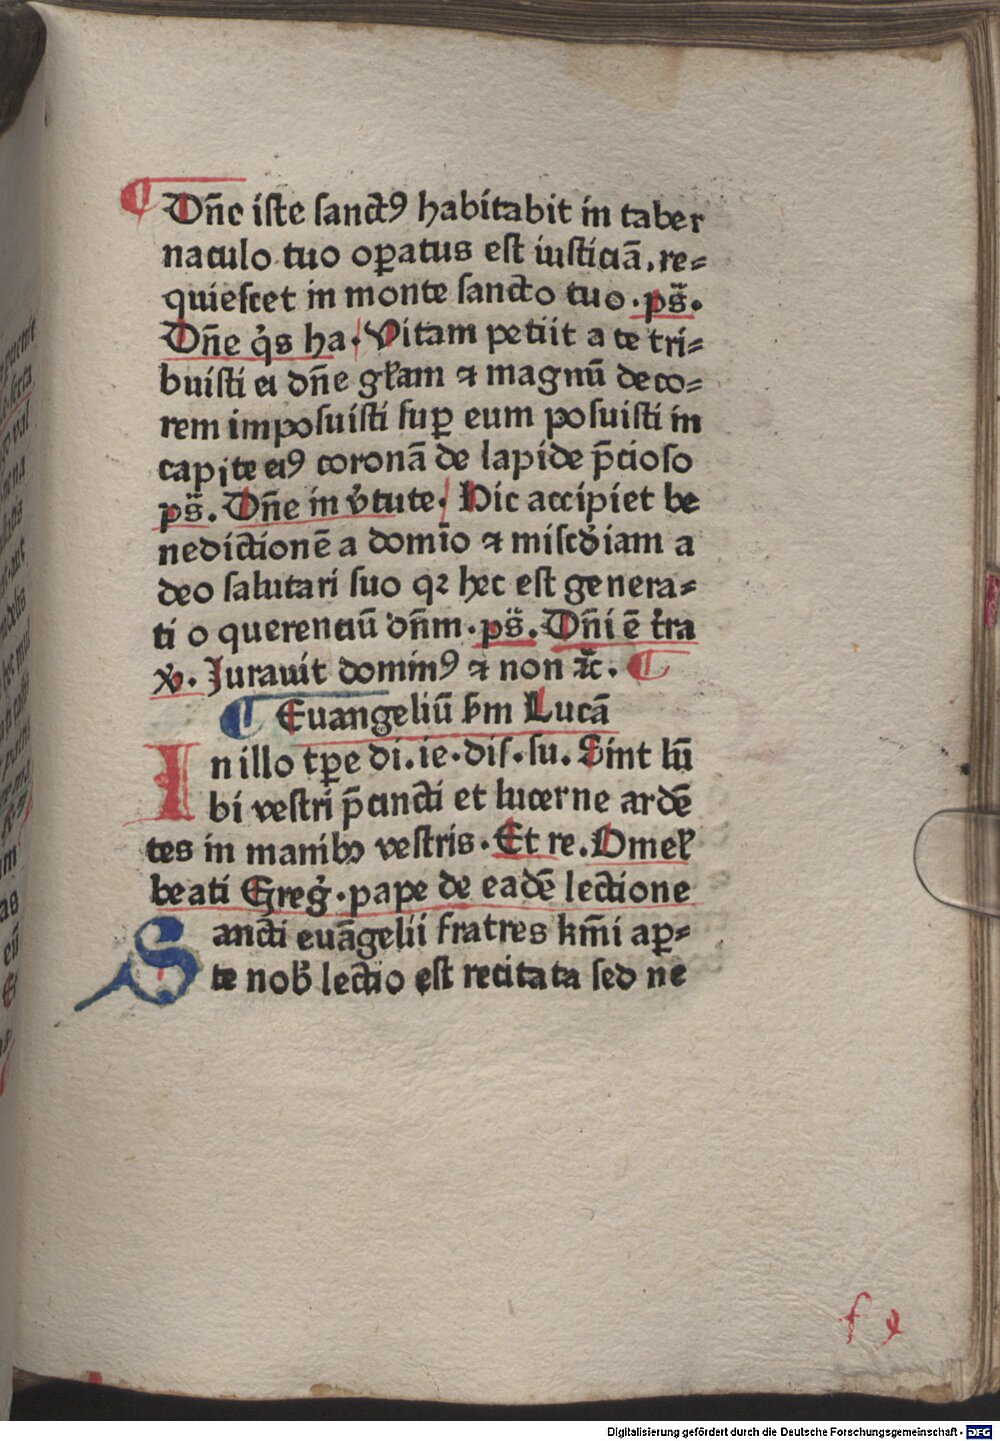 Dn̄e iste sanctꝰ habitabit in taber
naculo tuo oꝑatus est iusticiā, re⸗
quiescet in monte sancto tuo. ps̄.
Dn̄e q̇s ha. Vitam petiit a te tri⸗
buisti ei dn̄e gl̄am ⁊ magnū deco⸗
rem imposuisti suꝑ eum posuisti in
capite eiꝰ coronā de lapide p̄cioso
ps̄. Dn̄e in v̓tute. Hic accipiet be
nedictionē a domīo ⁊ misc̄diam a
deo salutari suo qꝛ hec est genera⸗
ti o querenciū dn̄m. ps̄. Dn̄i ē t̓ra
xv. Jurauit dominꝰ ⁊ non ⁊c̄.
Euangeliū ẜm Lucā
In illo tꝑe di. ie. dis. su. Sint lū
bi vestri p̄cincti et lucerne ardē
tes in manibꝫ vestris. Et re. Omel̄
beati Greg̓. pape de eadē lectione
Sancti euāgelii fratres km̄i aꝑ⸗
te nob̓ lectio est recitata sed ne
Digitalisierung gefördert durch die Deutsche Forschungsgemeinschaft - DFG